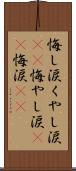 悔し涙くやし涙
悔やし涙
悔涙